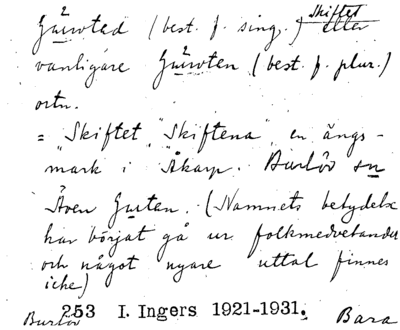 (best. f. sing.) eller
Skiftet
vanligare (best. f. plur.)
ortn.
= "Skiftet", "Skiftena", en ängs-
mark i Åkarp. Burlöv sn
Även Gurten. (Namnets betydelse
har börjat gå ur folkmedvetandet
och något nyare uttal finnes
icke)
253 I. Ingers 1921-1931.
Burlöv Bara